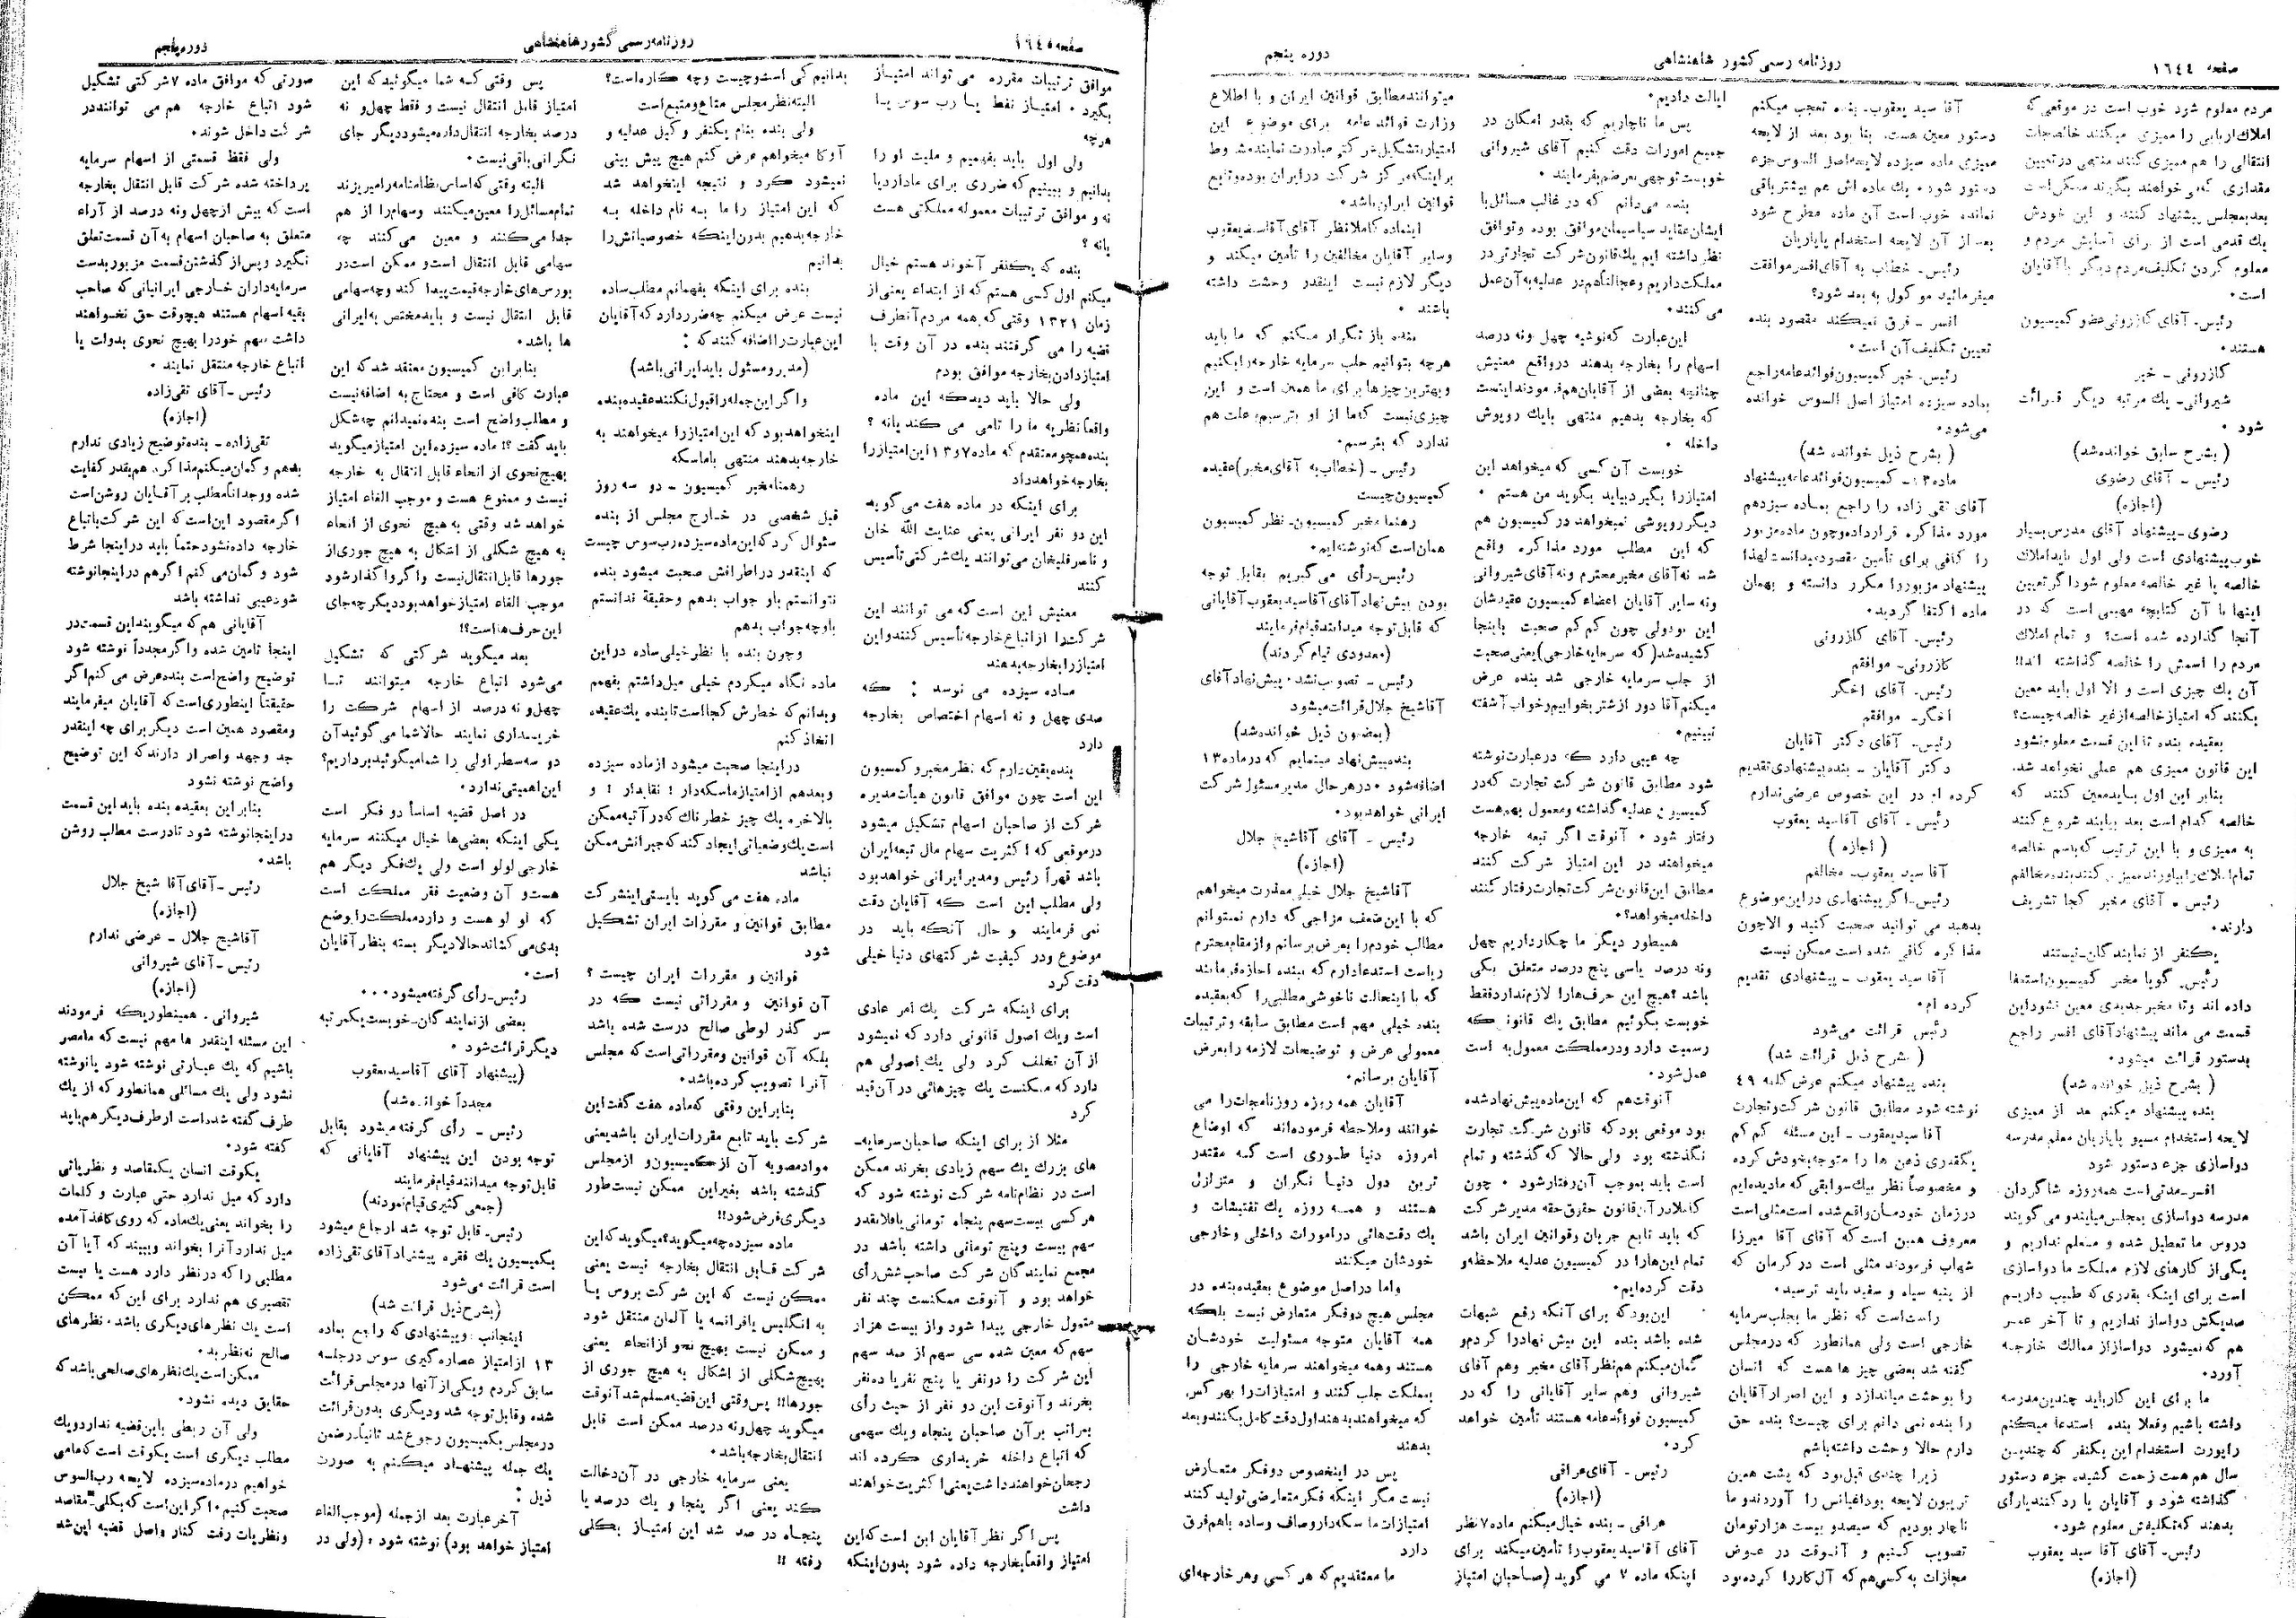 صفحه ١٦٤٤
روزنامه رسمی کشور شاهنشاهی
دوره پنجم
مردم معلوم شود خوب است در موقعی که
املاك اربابی را ممیزی میکنند خالصجات
انتقالی را هم ممیزی کنند منتهی در تعیین
مقداری که می خواهند بگیرند ممکن است
بعد بمجلس پیشنهاد کنند و این خودش
یك قدمی است از برای آسایش مردم و
معلوم کردن تکلیف مردم دیگر با آقایان
است ۰
رئیس- آقای کازرونی عضو کمیسیون
هستند ۰
کازرونی - خیر
شیروانی- یك مرتبه دیگر قرائت
شود ۰
( بشرح سابق خوانده شد)
رئیس - آقای رضوی
(اجازه)
رضوی - پیشنهاد آقای مدرس بسیار
خوب پیشنهادی است ولی اول باید املاك
خالصه یا غیر خالصه معلوم شود اگر تعیین
اینها با آن کتابچه مهیبی است که در
آنجا گذارده شده است؟ و تمام املاك
مردم را اسمش را خالصه گذاشته اند!!
آن یك چیزی است و الا اول باید معین
بکنند که امتیاز خالصه از غیر خالصه چیست؟
بعقیده بنده تا این قسمت معلوم نشود
این قانون ممیزی هم عملی نخواهد شد.
بنابر این اول باید معین کنند که
خالصه کدام است بعد بیایند شروع کنند
به ممیزی و با این ترتیب که باسم خالصه
تمام املاك را بیاورند ممیزی کنند بنده مخالفم
رئیس - آقای مخبر کجا تشریف
دارند۰
یکنفر از نمایندگان- نیستند
رئیس- گویا مخبر کمیسیون استعفا
داده اند و تا مخبر جدیدی معین نشود این
قسمت می ماند پیشنهاد آقای افسر راجع
بدستور قرائت میشود۰
( بشرح ذیل خوانده شد)
بنده پیشنهاد میکنم بعد از ممیزی
لایحه استخدام مسیو پاپاریان معلم مدرسه
دواسازی جزء دستور شود
افسر- مدتی است همه روزه شاگردان
مدرسه دواسازی بمجلس میایند و می گویند
دروس ما تعطیل شده و معلم نداریم و
یکی از کارهای لازم مملکت ما دواسازی
است برای اینکه بقدری که طبیب داریم
صدیکش دواساز نداریم و تا آخر عمر
هم که نمیشود دواساز از ممالك خارجه
آورد۰
ما برای این کار باید چندین مدرسه
داشته باشیم و فعلا بنده استدعا میکنم
راپورت استخدام این یکنفر که چندین
سال هم هست زحمت کشیده جزء دستور
گذاشته شود و آقایان یا رد کنند یا رأی
بدهند که تکلیفش معلوم شود۰
رئیس- آقای آقا سید یعقوب
(اجازه)
آقا سید یعقوب- بنده تعجب میکنم
دستور معین هست. بنا بود بعد از لایحه
ممیزی ماده سیزده لایحه اصل السوس جزء
دستور شود۰ یك ماده اش هم بیشتر باقی
نمانده خوب است آن ماده مطرح شود
بعد از آن لایحه استخدام پاپاریان
رئیس- خطاب به آقای افسر موافقت
میفرمائید موکول به بعد شود؟
افسر - فرق نمیکند مقصود بنده
تعیین تکلیف آن است۰
رئیس- خبر کمیسیون فوائد عامه راجع
بماده سیزده امتیاز اصل السوس خوانده
می شود۰
( بشرح ذیل خوانده شد)
ماده ۱۳- کمیسیون فوائد عامه پیشنهاد
آقای تقی زاده را راجع بماده سیزدهم
مورد مذاکره قرار داده و چون ماده مزبور
را کافی برای تأمین مقصود میدانست لهذا
پیشنهاد مزبور را مکرر دانسته و بهمان
ماده اکتفا گردید۰
رئیس- آقای کازرونی
کازرونی- موافقم
رئیس- آقای اخگر
اخگر- موافقم
رئیس- آقای دکتر آقایان
دکتر آقایان - بنده پیشنهادی تقدیم
کرده ام در این خصوص عرضی ندارم
رئیس - آقای آقاسید یعقوب
( اجازه )
آقا سید یعقوب- مخالفم
رئیس- اگر پیشنهادی در این موضوع
بدهید می توانید صحبت کنید و الا چون
مذاکره کافی شده است ممکن نیست
آقا سید یعقوب - پیشنهادی تقدیم
کرده ام۰
رئیس قرائت می شود
( بشرح ذیل قرائت شد)
بنده پیشنهاد میکنم عرض کلمه ٤٩
نوشته شود مطابق قانون شرکت و تجارت
آقا سید یعقوب - این مسئله کم کم
یکقدری ذهن ها را متوجه بخودش کرده
و مخصوصاً نظر بیك سوابقی که ما دیده ایم
در زمان خودمان واقع شده است مثلی است
معروف همین است که آقای آقا میرزا
شهاب فرمودند مثلی است در کرمان که
از پنبه سیاه و سفید باید ترسید۰
راست است که نظر ما بجلب سرمایه
خارجی است ولی همانطور که در مجلس
گفته شد بعضی چیز ها هست که انسان
را بوحشت میاندازد و این اصرار آقایان
را بنده نمی دانم برای چیست؟ بنده حق
دارم حالا وحشت داشته باشم
زیرا چندی قبل بود که پشت همین
تریبون لایحه بوداغیانس را آوردند و ما
ناچار بودیم که سیصد و بیست هزار تومان
تصویب کنیم و آنوقت در عوض
مجازات به کسی هم که آن کار را کرده بود
ایالت دادیم۰
پس ما ناچاریم که بقدر امکان در
جمیع امورات دقت کنیم آقای شیروانی
خوبست توجهی بعرضم بفرمایند ۰
بنده می دانم که در غالب مسائل با
ایشان عقاید سیاسیمان موافق بوده و توافق
نظر داشته ایم یك قانون شرکت تجارتی در
مملکت داریم و عجالتاً هم در عدلیه به آن عمل
می کنند۰
این عبارت که نوشته چهل و نه درصد
اسهام را بخارجه بدهند در واقع معنیش
چنانچه بعضی از آقایان هم فرمودند اینست
که بخارجه بدهیم منتهی با یك روپوش
داخله ۰
خوبست آن کسی که میخواهد این
امتیاز را بگیرد بیاید بگوید من هستم ۰
دیگر روپوشی نمیخواهد در کمیسیون هم
که این مطلب مورد مذاکره واقع
شد نه آقای مخبر محترم و نه آقای شیروانی
و نه سایر آقایان اعضاء کمیسیون عقیدشان
این بود ولی چون کم کم صحبت باینجا
کشیده شد (که سرمایه خارجی) یعنی صحبت
از جلب سرمایه خارجی شد بنده عرض
میکنم آقا دور از شتر بخوابیم و خواب آشفته
نبینیم۰
چه عیبی دارد که در عبارت نوشته
شود مطابق قانون شرکت تجارت که در
کمیسیون عدلیه گذاشته و معمول بهم هست
رفتار شود ۰ آنوقت اگر تبعه خارجه
میخواهند در این امتیاز شرکت کنند
مطابق این قانون شرکت تجارت رفتار کنند
داخله میخواهد؟۰
همیطور دیگر ما چکار داریم چهل
و نه درصد یا سی پنج درصد متعلق بکی
باشد ؟ هیچ این حرف ها را لازم ندارد فقط
خوبست بگوئیم مطابق یك قانونی که
رسمیت دارد و در مملکت معمول به است
عمل شود۰
آنوقت هم که این ماده پیش نهاد شده
بود موقعی بود که قانون شرکت تجارت
نگذشته بود ولی حالا که گذشته و تمام
است باید بموجب آن رفتار شود ۰ چون
کاملا در آن قانون حقوق حقه مدیر شرکت
که باید تابع جریان و قوانین ایران باشد
تمام این ها را در کمیسیون عدلیه ملاحظه و
دقت کرده ایم۰
این بود که برای آنکه رفع شبهات
شده باشد بنده این پیش نهاد را کردم و
گمان میکنم هم نظر آقای مخبر و هم آقای
شیروانی و هم سایر آقایانی را که در
کمیسیون فوائد عامه هستند تأمین خواهد
کرد۰
رئیس - آقای عراقی
(اجازه)
عراقی - بنده خیال میکنم ماده ۷ نظر
آقای آقا سید یعقوب را تأمین میکند برای
اینکه ماده ۷ می گوید (صاحبان امتیاز
میتوانند مطابق قوانین ایران و با اطلاع
وزارت فوائد عامه برای موضوع این
امتیاز تشکیل شرکتی مبادرت نمایند مشروط
بر اینکه مرکز شرکت در ایران بوده و تابع
قوانین ایران باشد۰
اینماده کاملا نظر آقای آقا سید یعقوب
و سایر آقایان مخالفین را تأمین میکند و
دیگر لازم نیست اینقدر وحشت داشته
باشند ۰
بنده باز تکرار میکنم که ما باید
هرچه بتوانیم جلب سرمایه خارجه را بکنیم
و بهترین چیزها برای ما همین است و این
چیزی نیست که ما از او بترسیم، علت هم
ندارد که بترسیم۰
رئیس - (خطاب به آقای مخبر) عقیده
کمیسیون چیست
رهنما مخبر کمیسیون- نظر کمیسیون
همان است که نوشته ایم۰
رئیس- رأی می گیریم بقابل توجه
بودن پیش نهاد آقای آقاسید یعقوب آقایانی
که قابل توجه میدانند قیام فرمایند
(معدودی قیام کردند)
رئیس - تصویب نشد۰ پیش نهاد آقای
آقا شیخ جلال قرائت میشود
(بمضمون ذیل خوانده شد)
بنده پیش نهاد مینمایم که در ماده ۱۳
اضافه شود ۰ در هر حال مدیر مسئول شرکت
ایرانی خواهد بود۰
رئیس - آقای آقا شیخ جلال
(اجازه)
آقا شیخ جلال خیلی معذرت میخواهم
که با این ضعف مزاجی که دارم نمیتوانم
مطالب خودم را بعرض برسانم و از مقام محترم
ریاست استدعا دارم که ببنده اجازه فرمایند
که با اینحالت ناخوشی مطلبی را که بعقیده
بنده خیلی مهم است مطابق سابقه و ترتیبات
معمولی عرض و توضیحات لازمه را بعرض
آقایان برسانم۰
آقایان همه روزه روزنامجات را می
خوانند و ملاحظه فرموده اند که اوضاع
امروزه دنیا طوری است که مقتدر
ترین دول دنیا نگران و متزلزل
هستند و همه روزه یك تفتیشات و
یك دقت هائی در امورات داخلی و خارجی
خودشان میکنند
و اما در اصل موضوع بعقیده بنده در
مجلس هیچ دو فکر متعارض نیست بلکه
همه آقایان متوجه مسئولیت خودشان
هستند و همه میخواهند سرمایه خارجی را
بمملکت جلب کنند و امتیازات را بهر کس
که میخواهند بدهند اول دقت کامل بکنند و بعد
بدهند
پس در اینخصوص دو فکر متعارض
نیست مگر اینکه فکر متعارضی تولید کنند
امتیازات ما سکه دار و صاف و ساده باهم فرق
دارد
ما معتقدیم که هر کسی و هر خارجه ای
صفحه ١٦٤٥
روزنامه رسمی کشور شاهنشاهی
دوره پنجم
موافق ترتیبات مقرره می تواند امتیاز
بگیرد ۰ امتیاز نفط یا رب سوس یا
هرچه
ولی اول باید بفهمیم و ملیت او را
بدانیم و ببینیم که ضرری برای ما دارد یا
نه و موافق ترتیبات معموله مملکتی هست
یا نه ؟
بنده که یکنفر آخوند هستم خیال
میکنم اول کسی هستم که از ابتداء یعنی از
زمان ١٣٢١ وقتی که همه مردم آنطرف
قضیه را می گرفتند بنده در آن وقت با
امتیاز دادن بخارجه موافق بودم
ولی حالا باید دید که این ماده
واقعاً نظریه ما را تأمی می کند یا نه ؟
بنده همچو معتقدم که ماده ٧ و ١٣ این امتیاز را
بخارجه خواهد داد
برای اینکه در ماده هفت می گوید
این دو نفر ایرانی یعنی عنایت الله خان
و ناصرقلیخان می توانند یك شرکتی تأسیس
کنند
معنیش این است که می توانند این
شرکت را از اتباع خارجه تأسیس کنند و این
امتیاز را بخارجه بدهند
ماده سیزده می نویسد : که
صدی چهل و نه اسهام اختصاص بخارجه
دارد
بنده یقین دارم که نظر مخبر و کمیسیون
این است چون موافق قانون هیأت مدیره
شرکت از صاحبان اسهام تشکیل میشود
در موقعی که اکثریت سهام مال تبعه ایران
باشد قهراً رئیس و مدیر ایرانی خواهد بود
ولی مطلب این است که آقایان دقت
نمی فرمایند و حال آنکه باید در
موضوع و در کیفیت شرکتهای دنیا خیلی
دقت کرد
برای اینکه شرکت یك امر عادی
است و یك اصول قانونی دارد که نمیشود
از آن تخلف کرد ولی یك اصولی هم
دارد که ممکنست یك چیزهائی در آن قید
کرد
مثلا از برای اینکه صاحبان سرمایه-
های بزرك یك سهم زیادی بخرند ممکن
است در نظامنامه شرکت نوشته شود که
هر کسی بیست سهم پنجاه تومانی یا فلانقدر
سهم بیست و پنج تومانی داشته باشد در
مجمع نمایندگان شرکت صاحب شش رأی
خواهد بود و آنوقت ممکنست چند نفر
متمول خارجی پیدا شود و از بیست هزار
سهم که معین شده سی سهم از صد سهم
این شرکت را دو نفر یا پنج نفر یا ده نفر
بخرند و آنوقت این دو نفر از حیث رأی
بمراتب بر آن صاحبان پنجاه و یك سهمی
که اتباع داخله خریداری کرده اند
رجحان خواهند داشت یعنی اکثریت خواهند
داشت
پس اگر نظر آقایان این است که این
امتیاز واقعاً بخارجه داده شود بدون اینکه
بدانیم کی است و چیست و چه کاره است؟
البته نظر مجلس متاع و متبع است
ولی بنده بنام یکنفر و کیل عدلیه و
آوکا میخواهم عرض کنم هیچ پیش بینی
نمیشود کرد و نتیجه اینخواهد شد
که این امتیاز را ما به نام داخله به
خارجه بدهیم بدون اینکه خصوصیاتش را
بدانیم
بنده برای اینکه بفهمانم مطلب ساده
نیست عرض میکنم چه ضرر دارد که آقایان
این عبارت را اضافه کنند که :
(مدیر و مسئول باید ایرانی باشد)
و اگر این جمله را قبول نکنند عقیده بنده
اینخواهد بود که این امتیاز را میخواهند به
خارجه بدهند منتهی باماسکه
رهنما مخبر کمیسیون - دو سه روز
قبل شخصی در خارج مجلس از بنده
سئوال کرد که این ماده سیزده رب سوس چیست
که اینقدر در اطرافش صحبت میشود بنده
نتوانستم باو جواب بدهم و حقیقة ندانستم
باو چه جواب بدهم
و چون بنده با نظر خیلی ساده در این
ماده نگاه میکردم خیلی میل داشتم بفهمم
و بدانم که خطرش کجا است تا بنده یك عقیده
اتخاذ کنم
در اینجا صحبت میشود از ماده سیزده
و بعدهم از امتیاز ماسکه دار ! نقابدار ! و
بالاخره یك چیز خطر ناك که در آتیه ممکن
است یك وضعیاتی ایجاد کند که جبرانش ممکن
نباشد
ماده هفت می گوید بایستی اینشرکت
مطابق قوانین و مقررات ایران تشکیل
شود
قوانین و مقررات ایران چیست ؟
آن قوانین و مقرراتی نیست که در
سر گذر لوطی صالح درست شده باشد
بلکه آن قوانین و مقرراتی است که مجلس
آنرا تصویب کرده باشد۰
بنابر این وقتی که ماده هفت گفت این
شرکت باید تابع مقررات ایران باشد یعنی
مواد مصوبه آن از کمیسیون و از مجلس
گذشته باشد بغیر این ممکن نیست طور
دیگری فرض شود!!
ماده سیزده چه میگوید؟ میگوید که این
شرکت قابل انتقال بخارجه نیست یعنی
ممکن نیست که این شرکت بروس یا
به انگلیس یا فرانسه یا آلمان منتقل شود
و ممکن نیست بهیچ نحو از انحاء یعنی
بهیچ شکلی از اشکال به هیچ جوری از
جورها!! پس وقتی این قضیه مسلم شد آنوقت
میگوید چهل و نه درصد ممکن است قابل
انتقال بخارجه باشد۰
یعنی سرمایه خارجی در آن دخالت
کند یعنی اگر پنجا و یك درصد یا
پنجاه در صد شد این امتیاز بکلی
رفته !!
پس وقتی که شما میگوئید که این
امتیاز قابل انتقال نیست و فقط چهل و نه
درصد بخارجه انتقال داده میشود دیگر جای
نگرانی باقی نیست۰
البته وقتی که اساس نظامنامه را میریزند
تمام مسائل را معین میکنند و سهام را از هم
جدا می کنند و معین می کنند چه
سهامی قابل انتقال است و ممکن است در
بورس های خارجه قیمت پیدا کند و چه سهامی
قابل انتقال نیست و باید مختص به ایرانی
ها باشد۰
بنابر این کمیسیون معتقد شد که این
عبارت کافی است و محتاج به اضافه نیست
و مطلب واضح است بنده نمیدانم چه شکل
باید گفت ؟! ماده سیزده این امتیاز میگوید
بهیچ نحوی از انحاء قابل انتقال به خارجه
نیست و ممنوع هست و موجب الغاء امتیاز
خواهد شد وقتی به هیچ نحوی از انحاء
به هیچ شکلی از اشکال به هیچ جوری از
جورها قابل انتقال نیست و اگر واگذار شود
موجب الغاء امتیاز خواهد بود دیگر چه جای
این حرف ها است؟!
بعد میگوید شرکتی که تشکیل
می شود اتباع خارجه میتوانند تا
چهل و نه درصد از اسهام شرکت را
خریداری نمایند حالا شما می گوئید آن
دو سه سطر اولی را شما میگوئید برداریم؟
این اهمیتی ندارد۰
در اصل قضیه اساساً دو فکر است
یکی اینکه بعضی ها خیال میکنند سرمایه
خارجی لولو است ولی یك فکر دیگر هم
هست و آن وضعیت فقر مملکت است
که لو لو هست و دارد مملکت را بوضع
بدی می کشاند حالا دیگر بسته بنظر آقایان
است۰
رئیس- رأی گرفته میشود ۰۰۰
بعضی از نمایندگان- خوبست یکمرتبه
دیگر قرائت شود ۰
(پیشنهاد آقای آقا سید یعقوب
مجدداً خوانده شد)
رئیس - رأی گرفته میشود بقابل
توجه بودن این پیشنهاد آقایانی که
قابل توجه میدانند قیام فرمایند
(جمعی کثیری قیام نمودند)
رئیس- قابل توجه شد ارجاع میشود
بکمیسیون یك فقره پیشنهاد آقای تقی زاده
است قرائت می شود
(بشرح ذیل قرائت شد)
اینجانب دو پیشنهادی که راجع بماده
١٣ از امتیاز عصاره گیری سوس در جلسه
سابق کردم و یکی از آنها در مجلس قرائت
شده و قابل توجه شد و دیگری بدون قرائت
در مجلس بکمیسیون رجوع شد ثانیاً در ضمن
یك جمله پیشنهاد میکنم به صورت
ذیل :
آخر عبارت بعد از جمله (موجب الغاء
امتیاز خواهد بود) نوشته شود : (ولی در
صورتی که موافق ماده ٧ شرکتی تشکیل
شود اتباع خارجه هم می توانند در
شرکت داخل شوند۰
ولی فقط قسمتی از اسهام سرمایه
پرداخته شده شرکت قابل انتقال بخارجه
است که بیش از چهل و نه درصد از آراء
متعلق به صاحبان اسهام به آن قسمت تعلق
نگیرد و پس از گذشتن قسمت مزبور بدست
سرمایه داران خارجی ایرانیانی که صاحب
بقیه اسهام هستند هیچوقت حق نخواهند
داشت سهم خود را بهیچ نحوی بدولت یا
اتباع خارجه منتقل نمایند ۰
رئیس - آقای تقی زاده
(اجازه)
تقی زاده - بنده توضیح زیادی ندارم
بدهم و گمان میکنم مذاکره هم بقدر کفایت
شده و وجداناً مطلب بر آقایان روشن است
اگر مقصود این است که این شرکت باتباع
خارجه داده نشود حتماً باید در اینجا شرط
شود و گمان می کنم اگر هم در اینجا نوشته
شود عیبی نداشته باشد
آقایانی هم که میگویند این قسمت در
اینجا تامین شده و اگر مجدداً نوشته شود
توضیح واضح است بنده عرض می کنم اگر
حقیقتاً اینطوری است که آقایان میفرمایند
و مقصود همین است دیگر برای چه اینقدر
جد و جهد و اصرار دارند که این توضیح
واضح نوشته نشود
بنابر این بعقیده بنده باید این قسمت
در اینجا نوشته شود تا درست مطالب روشن
باشد۰
رئیس - آقای آقا شیخ جلال
(اجازه)
آقا شیخ جلال - عرضی ندارم
رئیس - آقای شیروانی
(اجازه)
شیروانی. همینطوریکه فرمودند
این مسئله اینقدر ها مهم نیست که ما مصر
باشیم که یك عبارتی نوشته شود یا نوشته
نشود ولی یك مسائلی همانطور که از یك
طرف گفته شده است از طرف دیگر هم باید
گفته شود۰
یکوقت انسان یکمقاصد و نظریاتی
دارد که میل ندارد حتی عبارت و کلمات
را بخواند یعنی یك ماده که روی کاغذ آمده
میل ندارد آنرا بخواند و ببیند که آیا آن
مطلبی را که در نظر دارد هست یا نیست
تقصیری هم ندارد برای این که ممکن
است یك نظر های دیگری باشد۰ نظر های
صالح نه نظر بد۰
ممکن است یك نظر های صالحی باشد که
حقایق دیده نشود۰
ولی آن ربطی باین قضیه ندارد و یك
مطلب دیگری است یکوقت است که ما می
خواهیم در ماده سیزده لایحه رب السوس
صحبت کنیم۰ اگر این است که بکلی مقاصد
و نظریات رفت کنار و اصل قضیه این شد